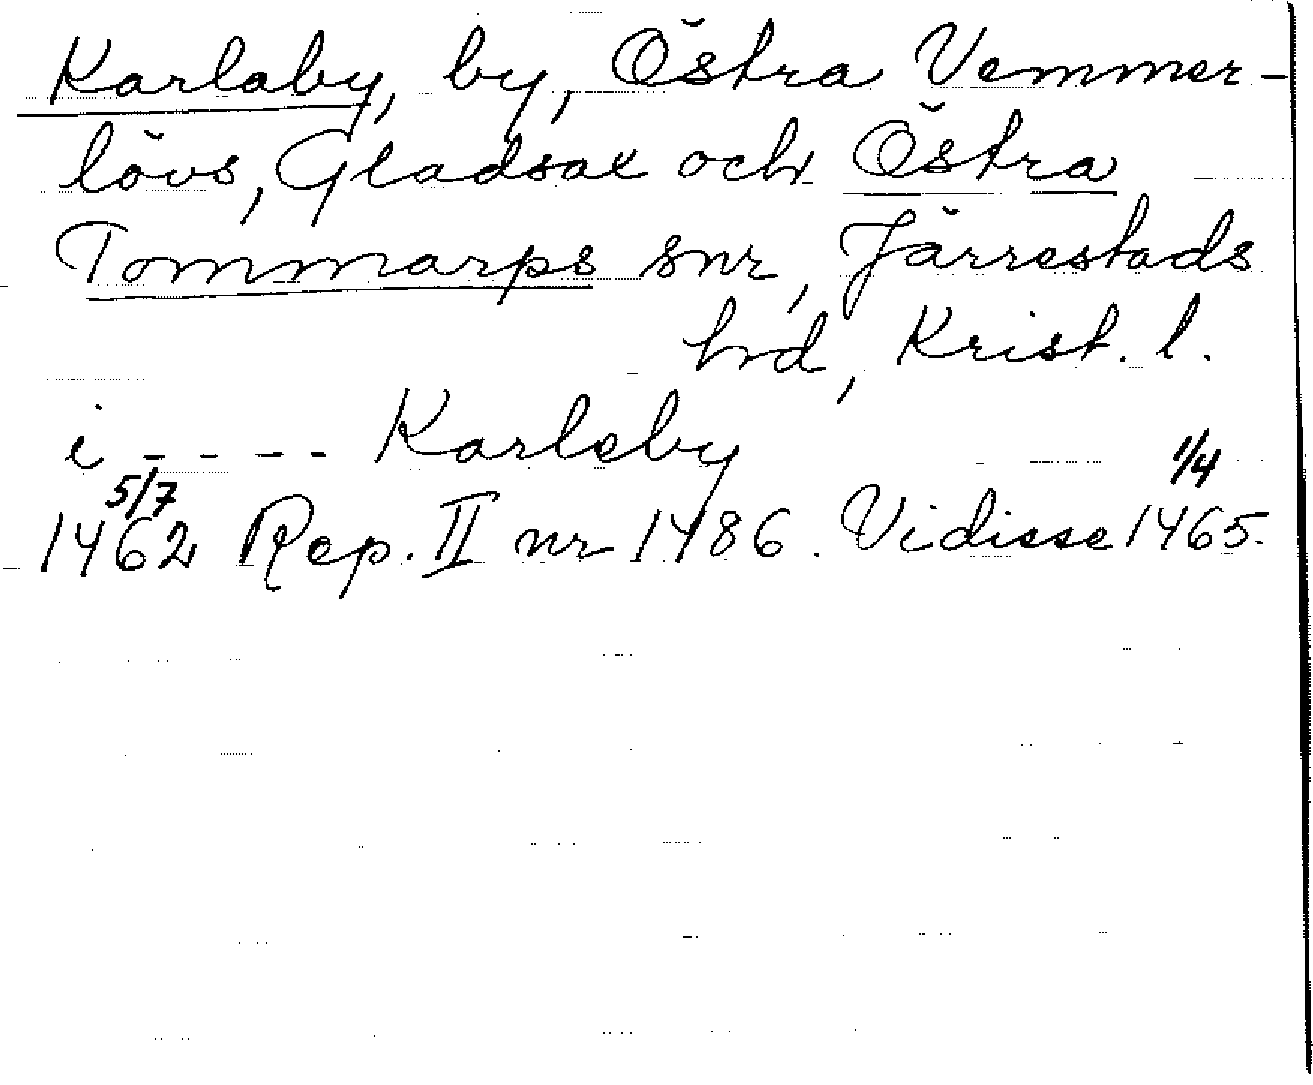 Karlaby, by, Östra Vemmer-
lövs, Gladsax och Östra
Tommarps snr, Järrestads
hrd, Krist. l.
i - - - - Karleby
5/7 1/4
1462 Rep. II nr 1486. Vidisse 1465.